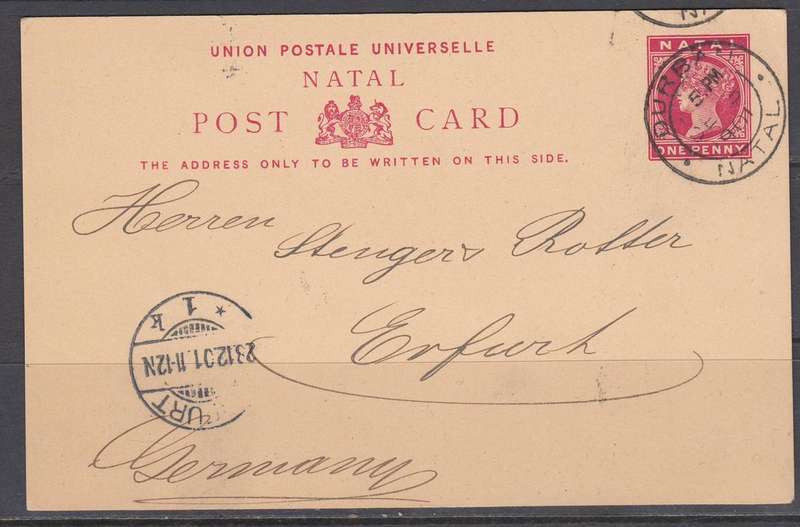 NA
UNION POSTALE UNIVERSELLE
NATAL
POST CARD
THE ADDRESS ONLY TO BE WRITTEN ON THIS SIDE.
NATAL
ONE PENNY
DURBAN
5 PM
NATAL
Herren
Stenger & Rotter
Erfurt
Germany
* 1 k
23.12.01.11-12N
URT